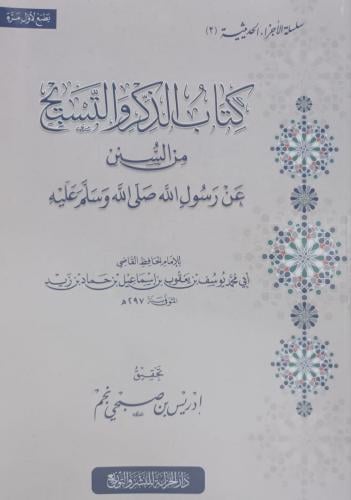 سلسلة الأجزاء الحديثية (٢)
يطبع لأول مرة
كتاب الذكر والتسبيح
من السنن
عن رسول الله صلى الله وسلم عليه
للإمام الحافظ القاضي
أبي محمد يوسف بن يعقوب بن إسماعيل بن حماد بن زيد
المتوفى سنة ٢٩٧ھ
تحقيق
إدريس بن صبحي نجم
للنشر والتوزيع